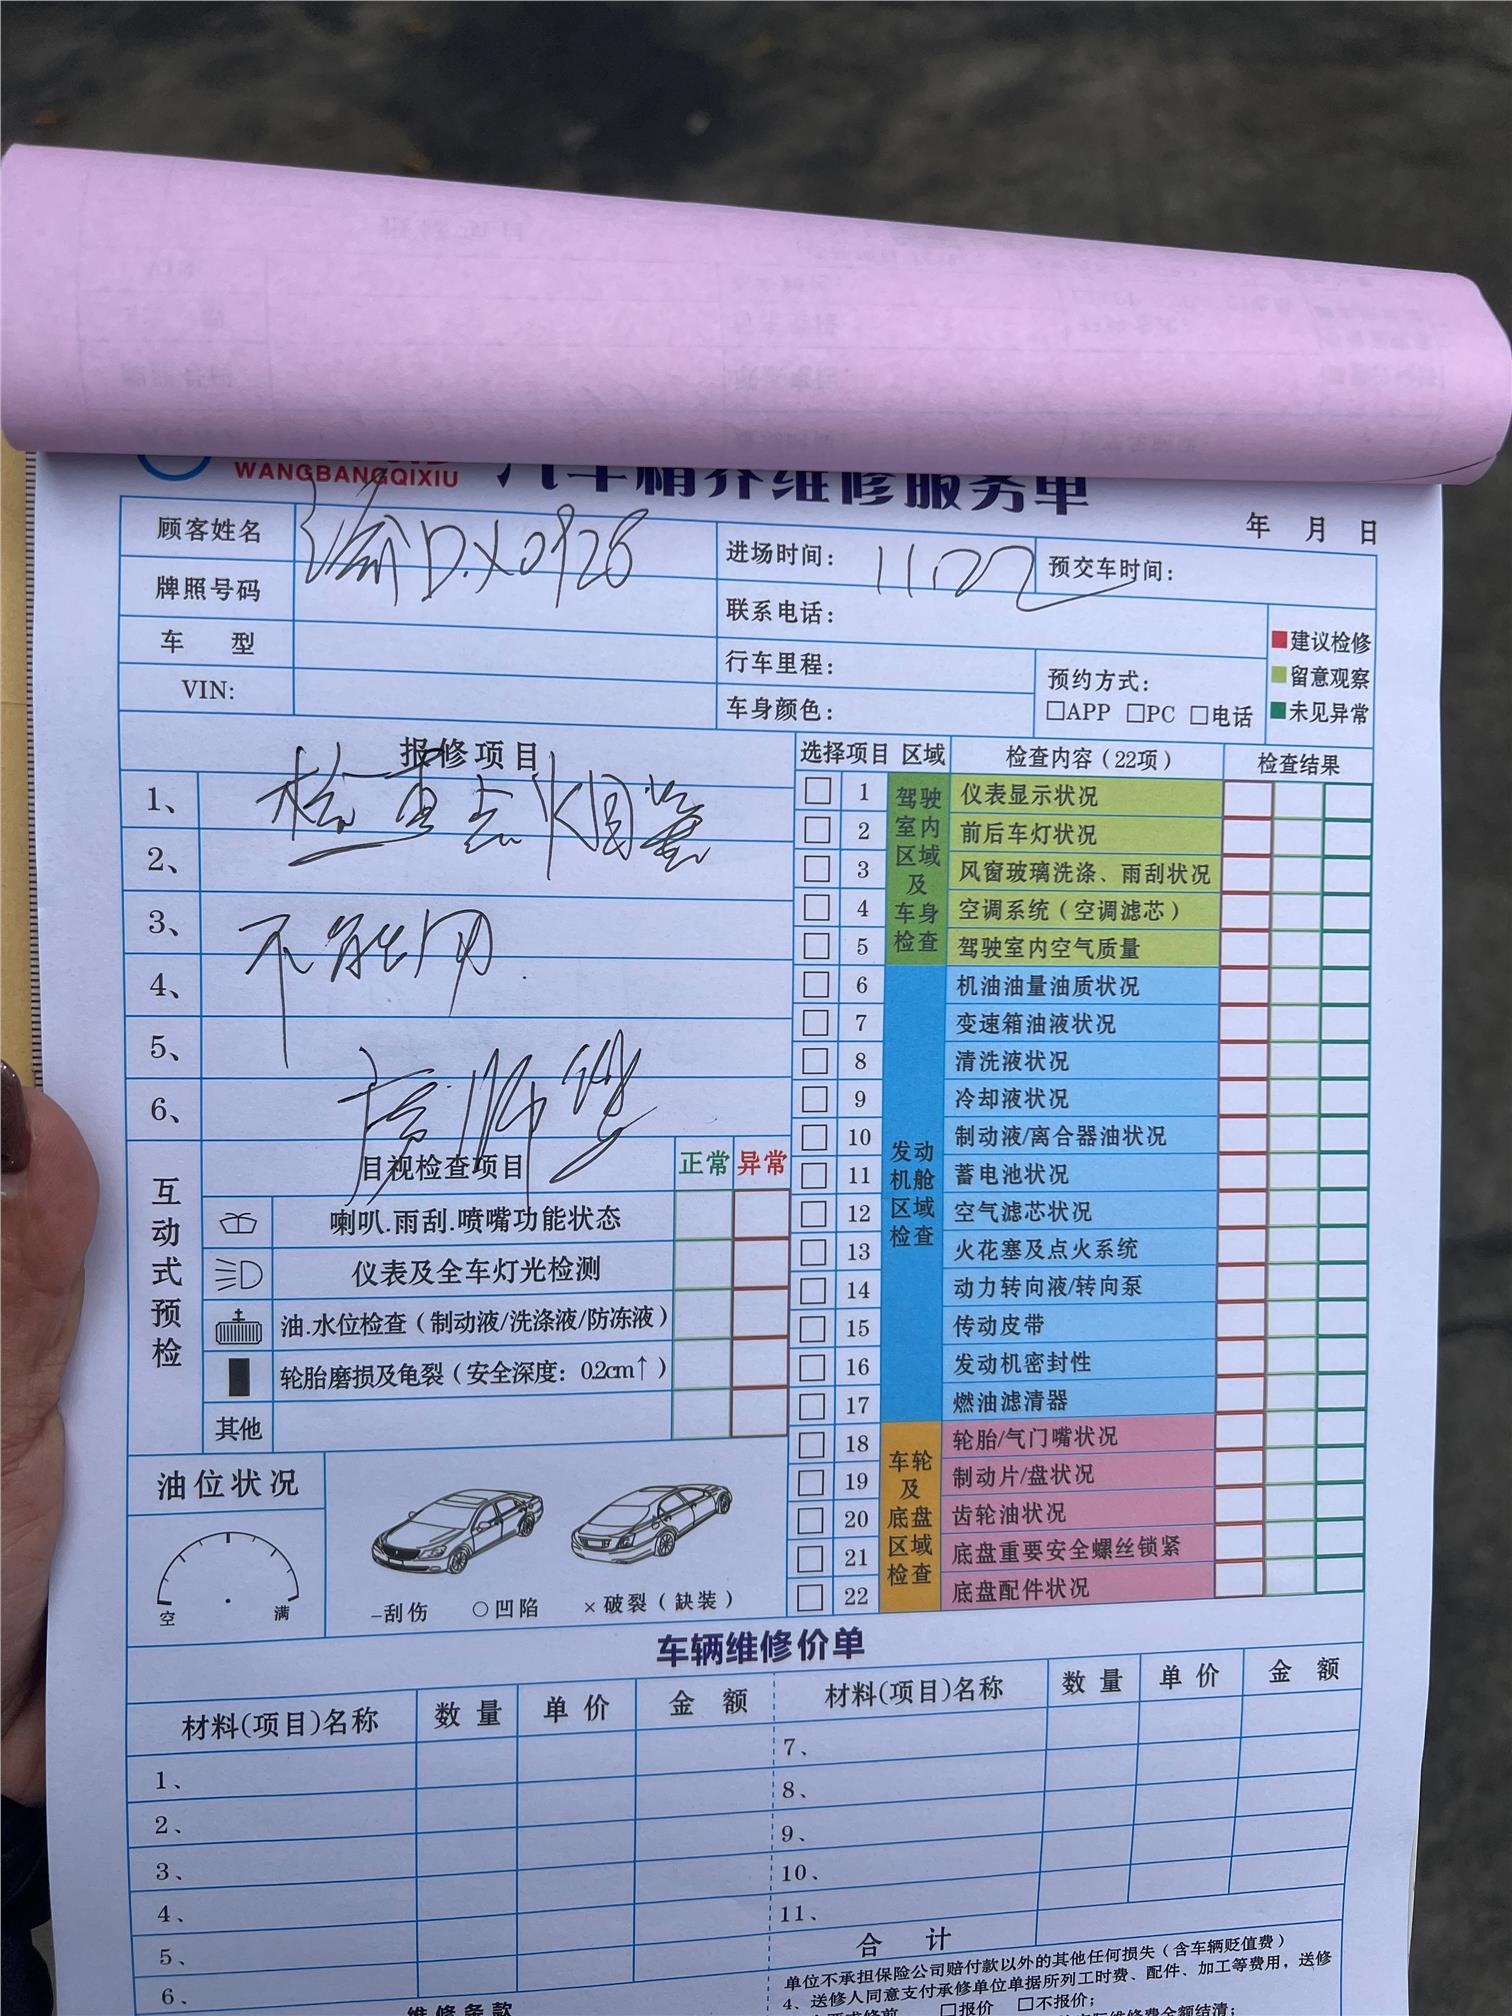 WANGBANGQIXIU 汽车精养维修服务单
年 月 日
顾客姓名 渝D.X0926 进场时间: 11.22 预交车时间:
牌照号码 联系电话:
车 型 行车里程: 预约方式:
□APP □PC □电话
VIN: 车身颜色:
建议检修
留意观察
未见异常
报修项目
1、 检查点烟器
2、
3、 不能用
4、
5、
6、
互动式预检
目视检查项目 正常 异常
喇叭.雨刮.喷嘴功能状态
仪表及全车灯光检测
油.水位检查(制动液/洗涤液/防冻液)
轮胎磨损及龟裂(安全深度: 0.2cm↑)
其他
油位状况
空 满
-刮伤 ○凹陷 ×破裂(缺装)
选择项目 区域 检查内容(22项) 检查结果
驾驶室内区域及车身检查
1 仪表显示状况
2 前后车灯状况
3 风窗玻璃洗涤、雨刮状况
4 空调系统(空调滤芯)
5 驾驶室内空气质量
发动机舱区域检查
6 机油油量油质状况
7 变速箱油液状况
8 清洗液状况
9 冷却液状况
10 制动液/离合器油状况
11 蓄电池状况
12 空气滤芯状况
13 火花塞及点火系统
14 动力转向液/转向泵
15 传动皮带
16 发动机密封性
17 燃油滤清器
车轮及底盘区域检查
18 轮胎/气门嘴状况
19 制动片/盘状况
20 齿轮油状况
21 底盘重要安全螺丝锁紧
22 底盘配件状况
车辆维修价单
材料(项目)名称 数量 单价 金额 材料(项目)名称 数量 单价 金额
1、 7、
2、 8、
3、 9、
4、 10、
5、 11、
6、 合计
维修条款
单位不承担保险公司赔付款以外的其他任何损失(含车辆贬值费)
4、送修人同意支付承修单位单据所列工时费、配件、加工等费用，送修
□报价 □不报价;